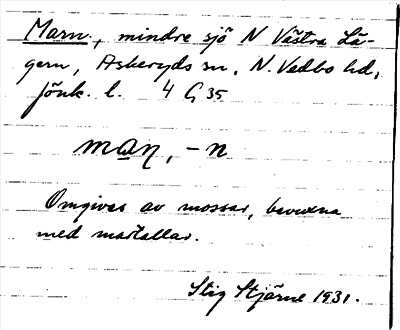 Marn., mindre sjö N Västra Lä-
gern, Askeryds sn, N. Vedbo hd,
Jönk. l. 4 G 35
maṉ, -n
Omgives av mossar, bevuxna
med martallar.
Stig Stjärne 1931.